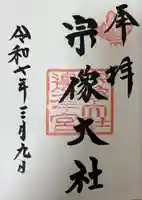 奉拝
宗像大社
令和七年三月九日